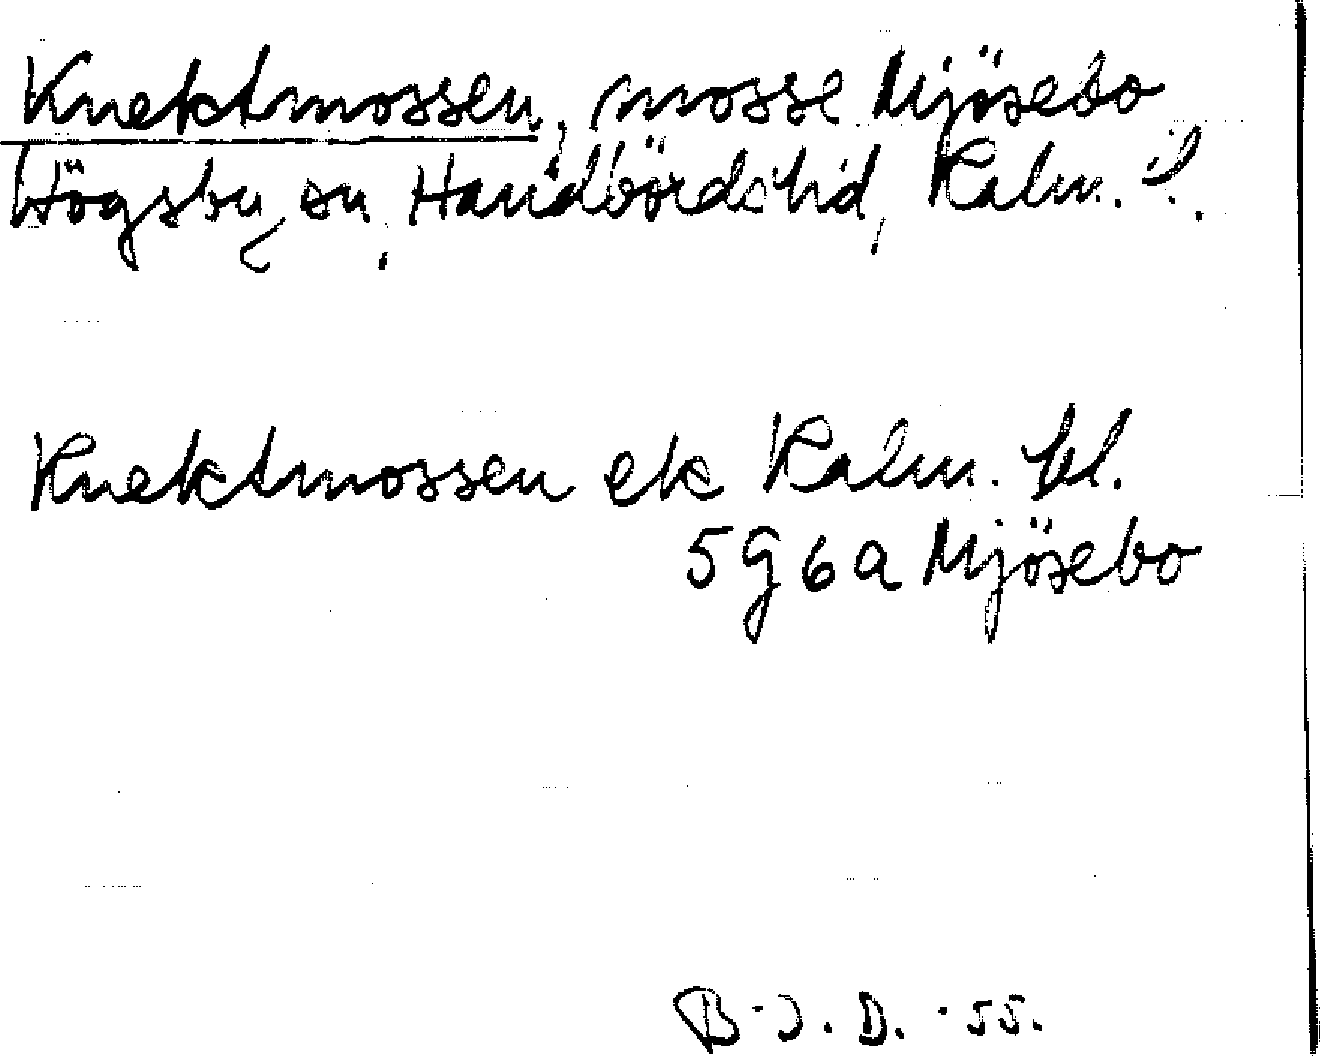 Knektmossen, mosse Mjösebo
Högsby sn, Handbörds hd, Kalm. l.
Knektmossen ek Kalm. bl.
5 G 6 a Mjösebo
B-J. D. -55.